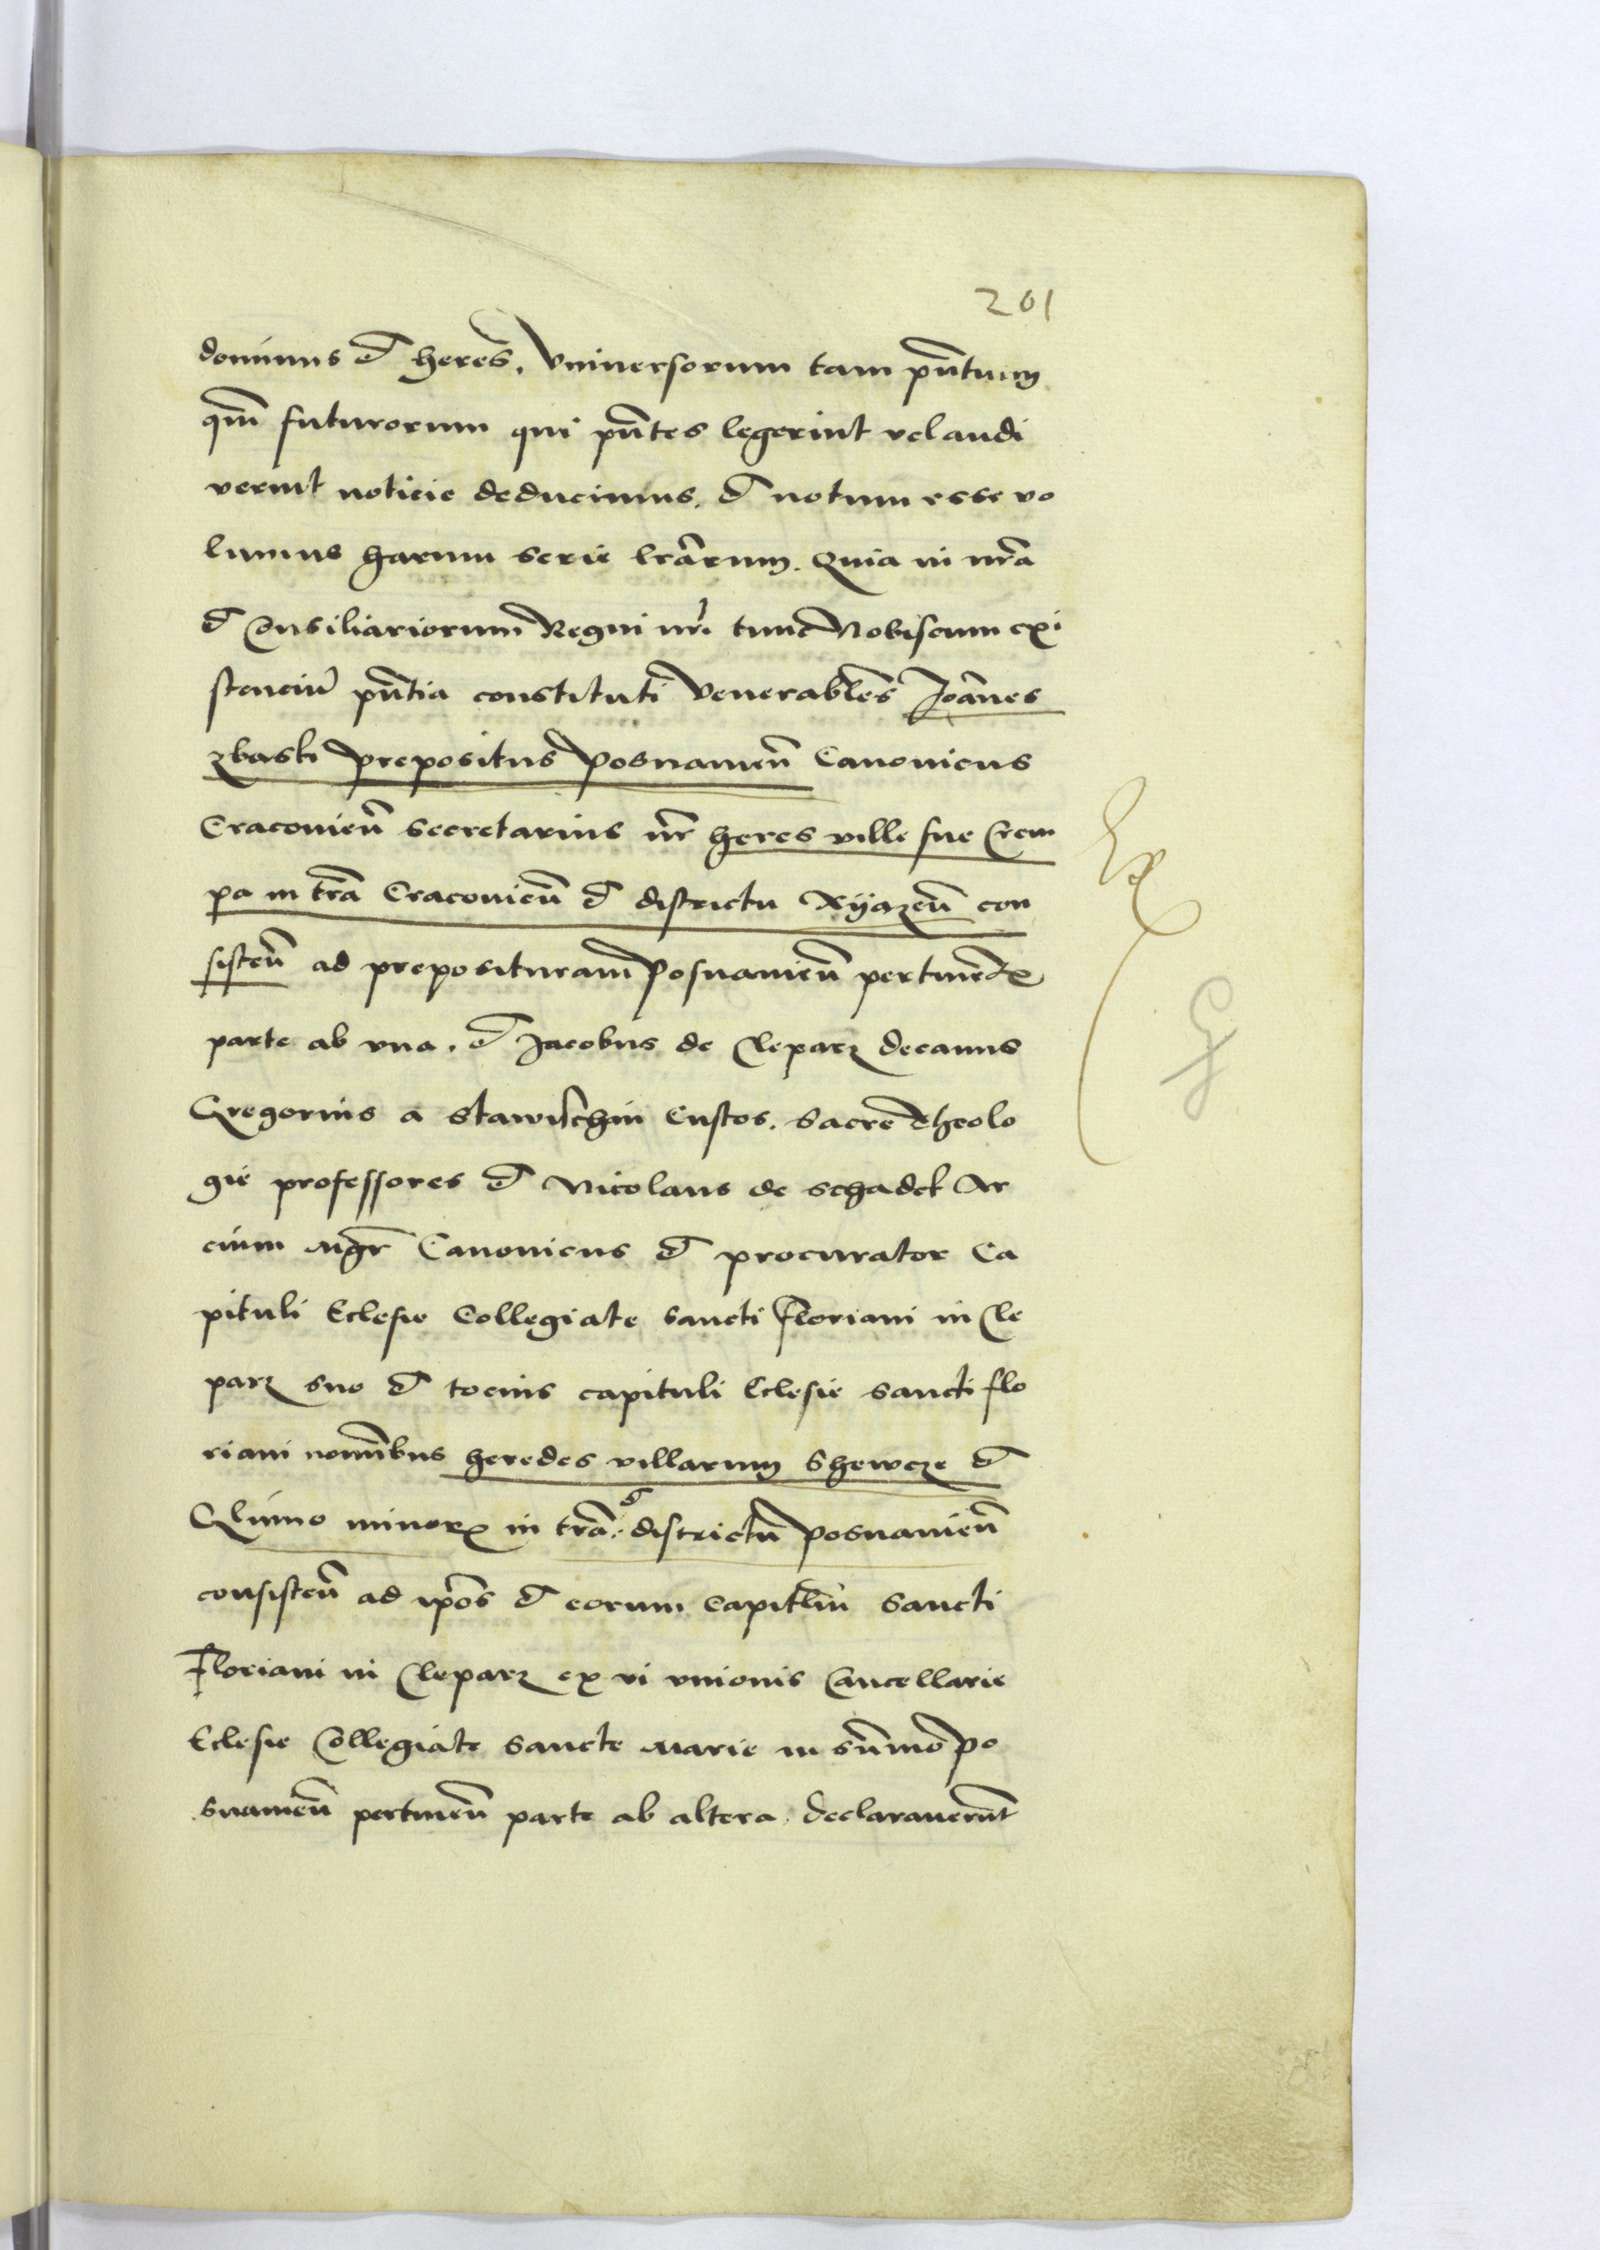 201
dominus et heres. Vniuersorum tam pn̄tium
qm̄ futurorum qui pn̄tes legerint vel audi
verint noticie deducimus. et notum esse vo
lumus harum serie lr̄arum. Quia in nr̄a
et Consiliariorum Regni nr̄i tunc Nobiscum exi
stenciū pn̄tia constituti Venerabīles Joānes
zbaski prepositus Posnanieñ Canonicus
Cracovieñ secretarius nr̄ heres ville sue Crem
pa in tr̄a Cracovieñ et districtu Xyązeñ con
sisteñ ad preposituram Posnanieñ pertineñ
parte ab vna. et Jacobus de Cleparz decanus
Gregorius a Stawischin Custos. sacre Theolo
gie professores et Nicolaus de schadek Ar
cium Mgr̄ Canonicus et procurator Ca
pituli Eclesie Collegiate sancti Floriani in Cle
parz suo et tocius capituli Eclesie sancti Flo
riani nomībus heredes villarum Shewcze et
Glinno minorꝝ in tr̄a et districtū Posnanieñ
consisteñ ad ip̄os et eorum Capitl̄m Sancti
Floriani in Cleparz ex vi vnionis Cancellarie
Eclesie Collegiate Sancte Marie in Sūmo Po
snanieñ pertineñ parte ab altera. declarauerūt